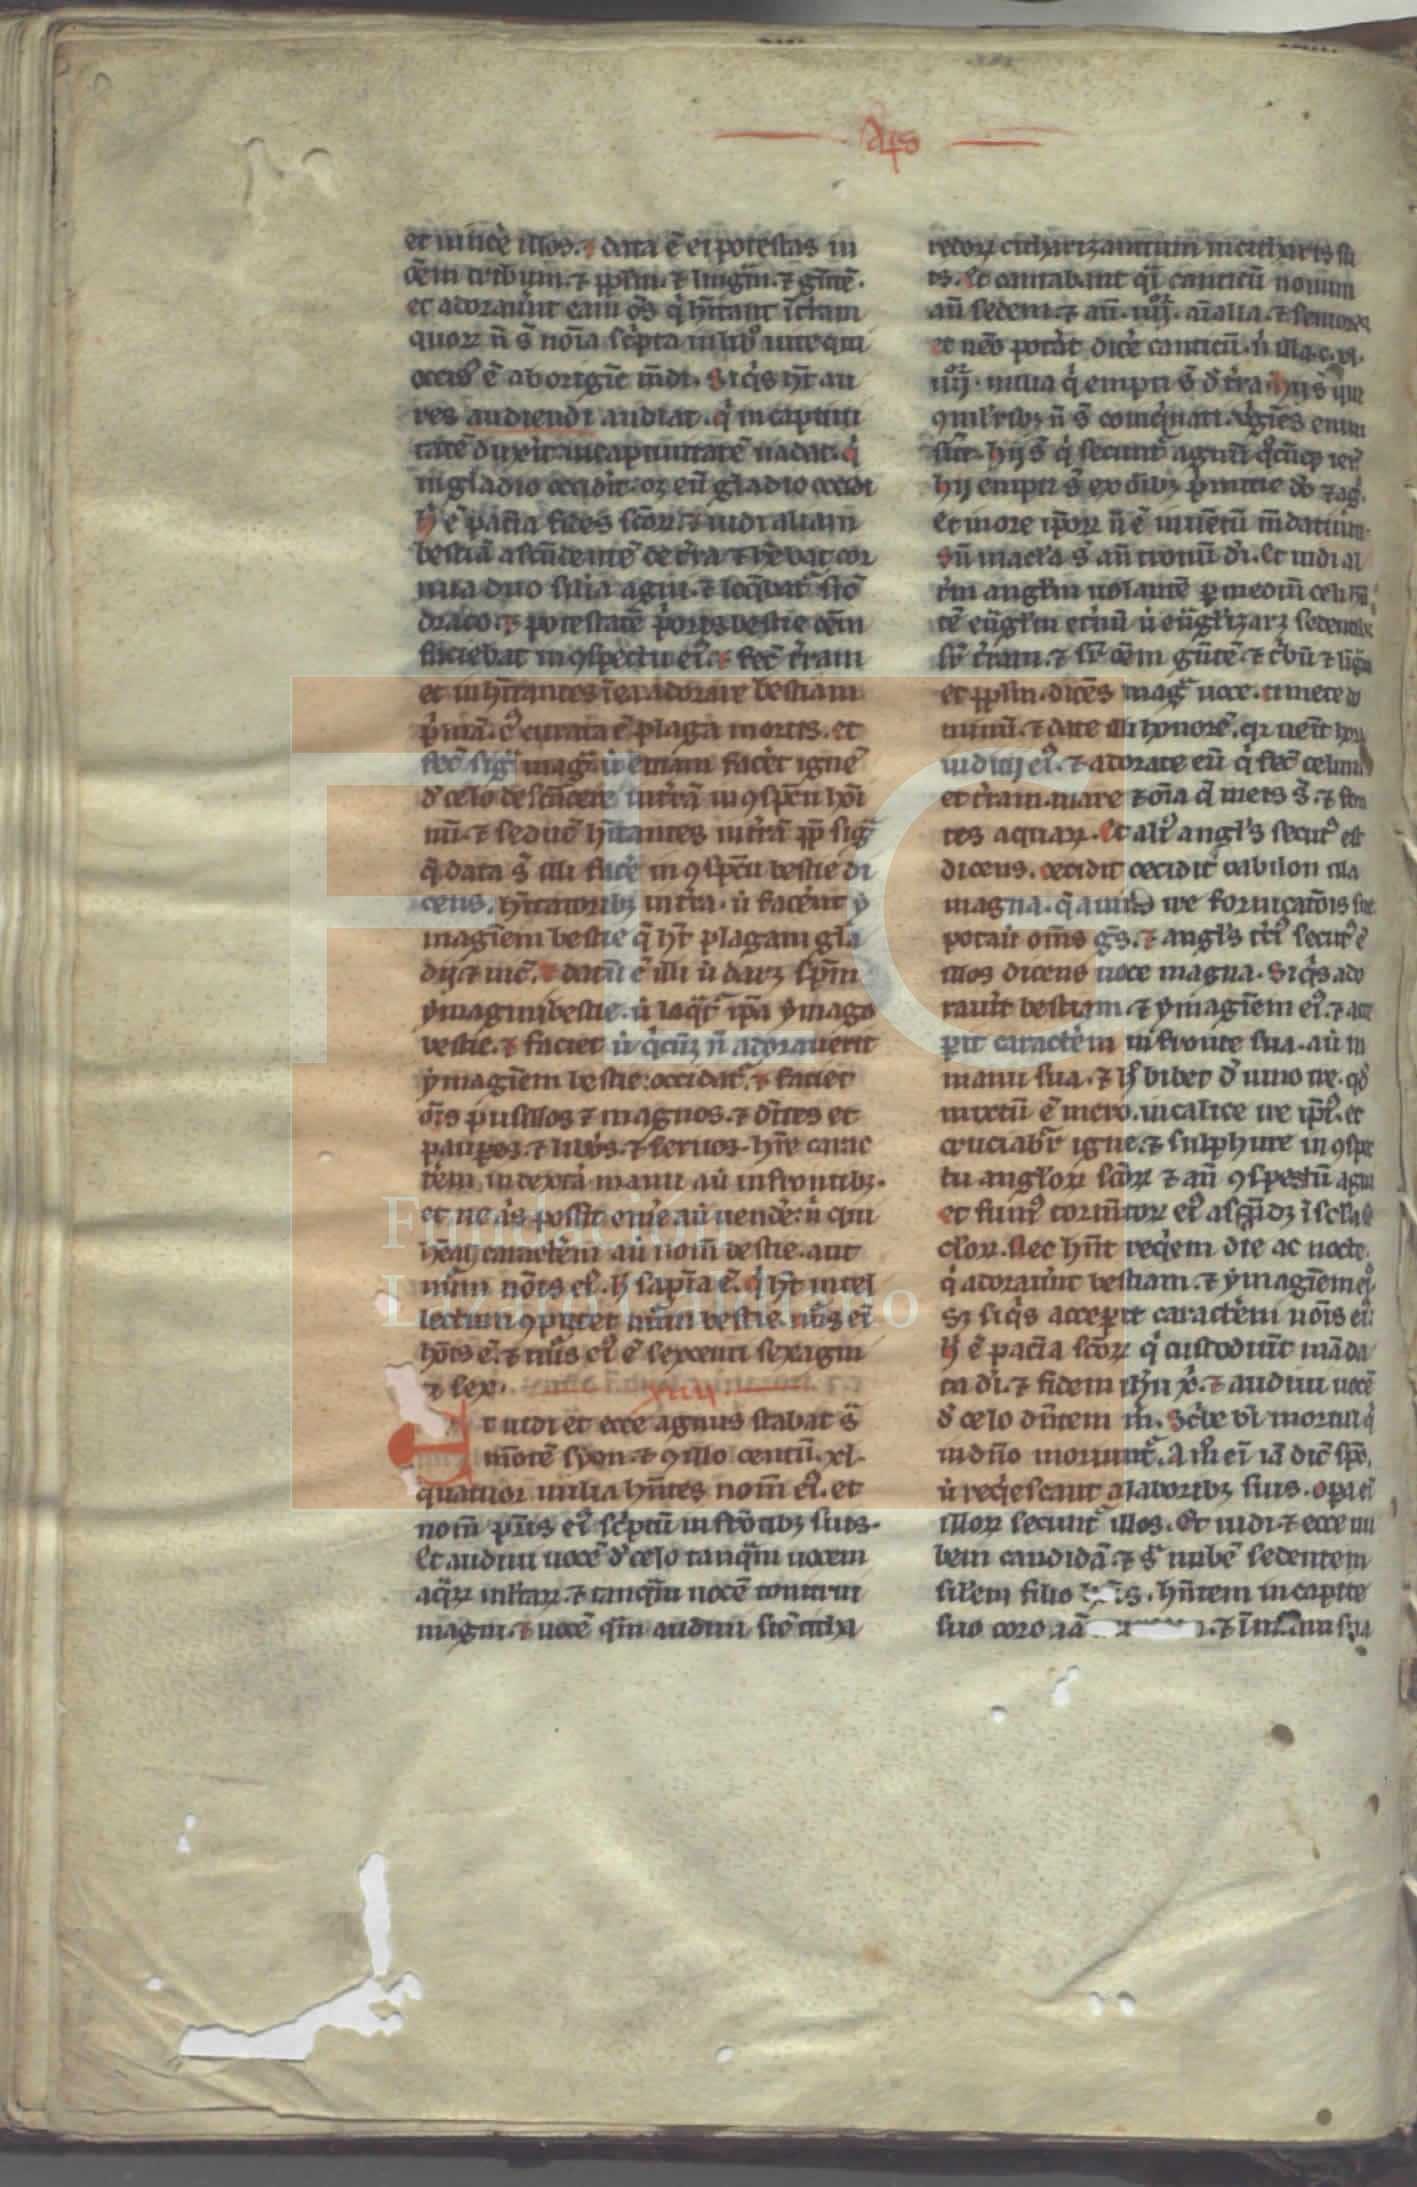 Aps
et uincē illos. ⁊ data ē ei potestas in
oēm tribum. ⁊ pplm. ⁊ linguā. ⁊ gētē.
et adorauūt eam oēs q̇ hītant īterram
quoꝝ n̄ s̄ noīa scpta in libro uite agni
occisi ē ab origīe mūdi. Siq̇s ht̄ au
res audiendi audiat. q̇ in captiui
tatē duxit in captiuitatē uadat. q̇
in gladio occidit: oꝫ eū gladio occidi
h̄ ē pacīa ⁊ fides sctoꝝ. ⁊ uidi aliam
bestiā ascēdentē de tr̄a ⁊ hēbat cor
nua duo silia agni. ⁊ loq̄batr̄ sic
draco. ⁊ potestatē p̄oris bestie oēm
faciebat in ꝯspectu ei⁹. ⁊ fec̄ tr̄am
et inhītantes ī ea adorare bestiam
p̄mā. c⁹ curata ē plaga mortis. et
fec̄ sig̅ mag̅ ut etiam facēt ignē
d̄ celo descēdere in tr̄ā in ꝯspcū hoī
nū. ⁊ seduc̄ hītantes in tr̄ā ꝓp̄ sig̅
q̄ data s̄ illi facē in ꝯspcū bestie di
cens hītatoribꝫ in tr̄a. ut faceūt y
magīem bestie q̄ ht̄ plagam gla
dij. ⁊ uic̄. ⁊ datū ē illi ut darꝫ spm̄
ymagini bestie. ut loq̄t̄ ip̄a ymago
bestie. ⁊ faciet ut q̇cūqꝫ n̄ adorauerit
ymagīem bestie: occidat̄. ⁊ faciet
oīs pusillos ⁊ magnos. ⁊ diites et
paupes. ⁊ libos. ⁊ seruos. hre carac
tēm in dextra manu aut in frontibꝫ.
et ne q̇s possit emē aut uendē: n̄ qui
hēat caractēm aut nom̄ bestie. aut
nūm nois ei⁹. h̄ sapīa ē. q̇ ht̄ intel
lectum ꝯputet nūm bestie. nūs ei
hois ē. ⁊ nūs ei⁹ ē sexcenti sexagin
⁊ sex. xiiii
Et uidi et ecce agnus stabat s̄
mōtē syon. ⁊ ꝯ illo centū. xl.
quatuor milia hntes nom̄ ei⁹. et
nom̄ pris ei⁹ scptū in frōtibꝫ suis.
Et audiui uocē d̄ celo tanq̄m uocem
aq̄ꝝ multaꝝ. ⁊ tanq̄m uocē tonitrui
magni. ⁊ uocē qm̄ audiui sic̄ citha
redoꝝ citharizantium in citharis su
is. Et cantabant q̇i canticū nouum
an̄ sedem. ⁊ an̄. iiij. aīalia. ⁊ seniores
et nēo potat dicē canticū. n̄ illa. c. xl.
iiij. milia q̇ empti s̄ d̄ tr̄a. Hij s̄ qui
ꝯ mulribꝫ n̄ s̄ coinq̇nati. virgīes enim
sūt. hij s̄ q̇ secunt̄ agnū q̇cūqꝫ ierit
hij empti s̄ ex oībꝫ pmitie do ⁊ ag.
Et in ore ip̄oꝝ n̄ ē inuētū mēdatium.
Sn̄ macla s̄ an̄ tronū di. Et uidi al
tm angl̄m uolantē p medīū celi
tē eūgl̄m etnū ut eūgl̄izarꝫ sedentibꝫ
sr̄ tr̄am. ⁊ sr̄ oēm gētē. ⁊ tbū ⁊ lig̅a
et pplm. dicēs mag̅ uoce. timete do
minū. ⁊ date illi honorē. qꝛ uēit hora
iudicij ei⁹. ⁊ adorate eū q̇ fec̄ celum
et tr̄am. mare ⁊ oīa q̄ in eis s̄. ⁊ fon
tes aquaꝝ. Et ali⁹ angl̄s secut⁹ est
dicens. cecidit cecidit babilon illa
magna. q̄ a uino ire fornicatōis sue
potauit oms gs̄. ⁊ angl̄s tci⁹ secut⁹ ē
illos dicens uoce magna. Siq̇s ado
rauit bestiam. ⁊ ymagīem ei⁹. ⁊ acce
pit caractēm in fronte sua. aut in
manu sua. ⁊ h̄ bibet d̄ uino ire. qd̄
mixtū ē mero. in calice ire ip̄i⁹. et
cruciabr̄ igne. ⁊ sulphure in ꝯspe
tu angl̄oꝝ sctoꝝ ⁊ an̄ ꝯspectū agni
et fum⁹ tormētoꝝ ei⁹ ascēdꝫ ī scl̄a s
cl̄oꝝ. Nec hnt req̇em die ac nocte.
q̇ adorauūt bestiam. ⁊ ymagīem ei⁹.
Et siq̇s acceperit caractēm nois ei⁹.
h̄ ē pacīa sctoꝝ q̇ custodiūt māda
ta di. ⁊ fidem ihu x̄. ⁊ audiui uocē
d̄ celo dicētem m. Scbe bī mortui q̇
in dno moriunt̄. Am̄ ei iā dic̄ sps̄.
ut req̇escant a laboribꝫ suis. opa ei
illoꝝ secunt̄ illos. Et uidi ⁊ ecce nu
bem candidā. ⁊ s̄ nubē sedentem
silem filio hois. hntem in capite
suo coronā ⁊ ī manu sua
Fundación
Lázaro Galdiano